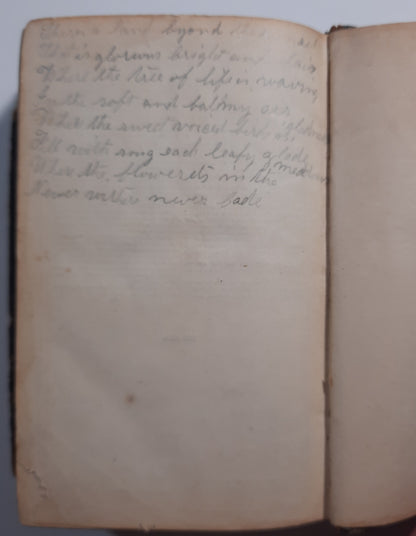 There's a land byond the
That is glorious bright and fair
Where the tree of life is waving
In the soft and balmy air
Where the sweet voiced birds
Fill with song each leafy glade
Where the flowerets in the meadows
Never wither never fade